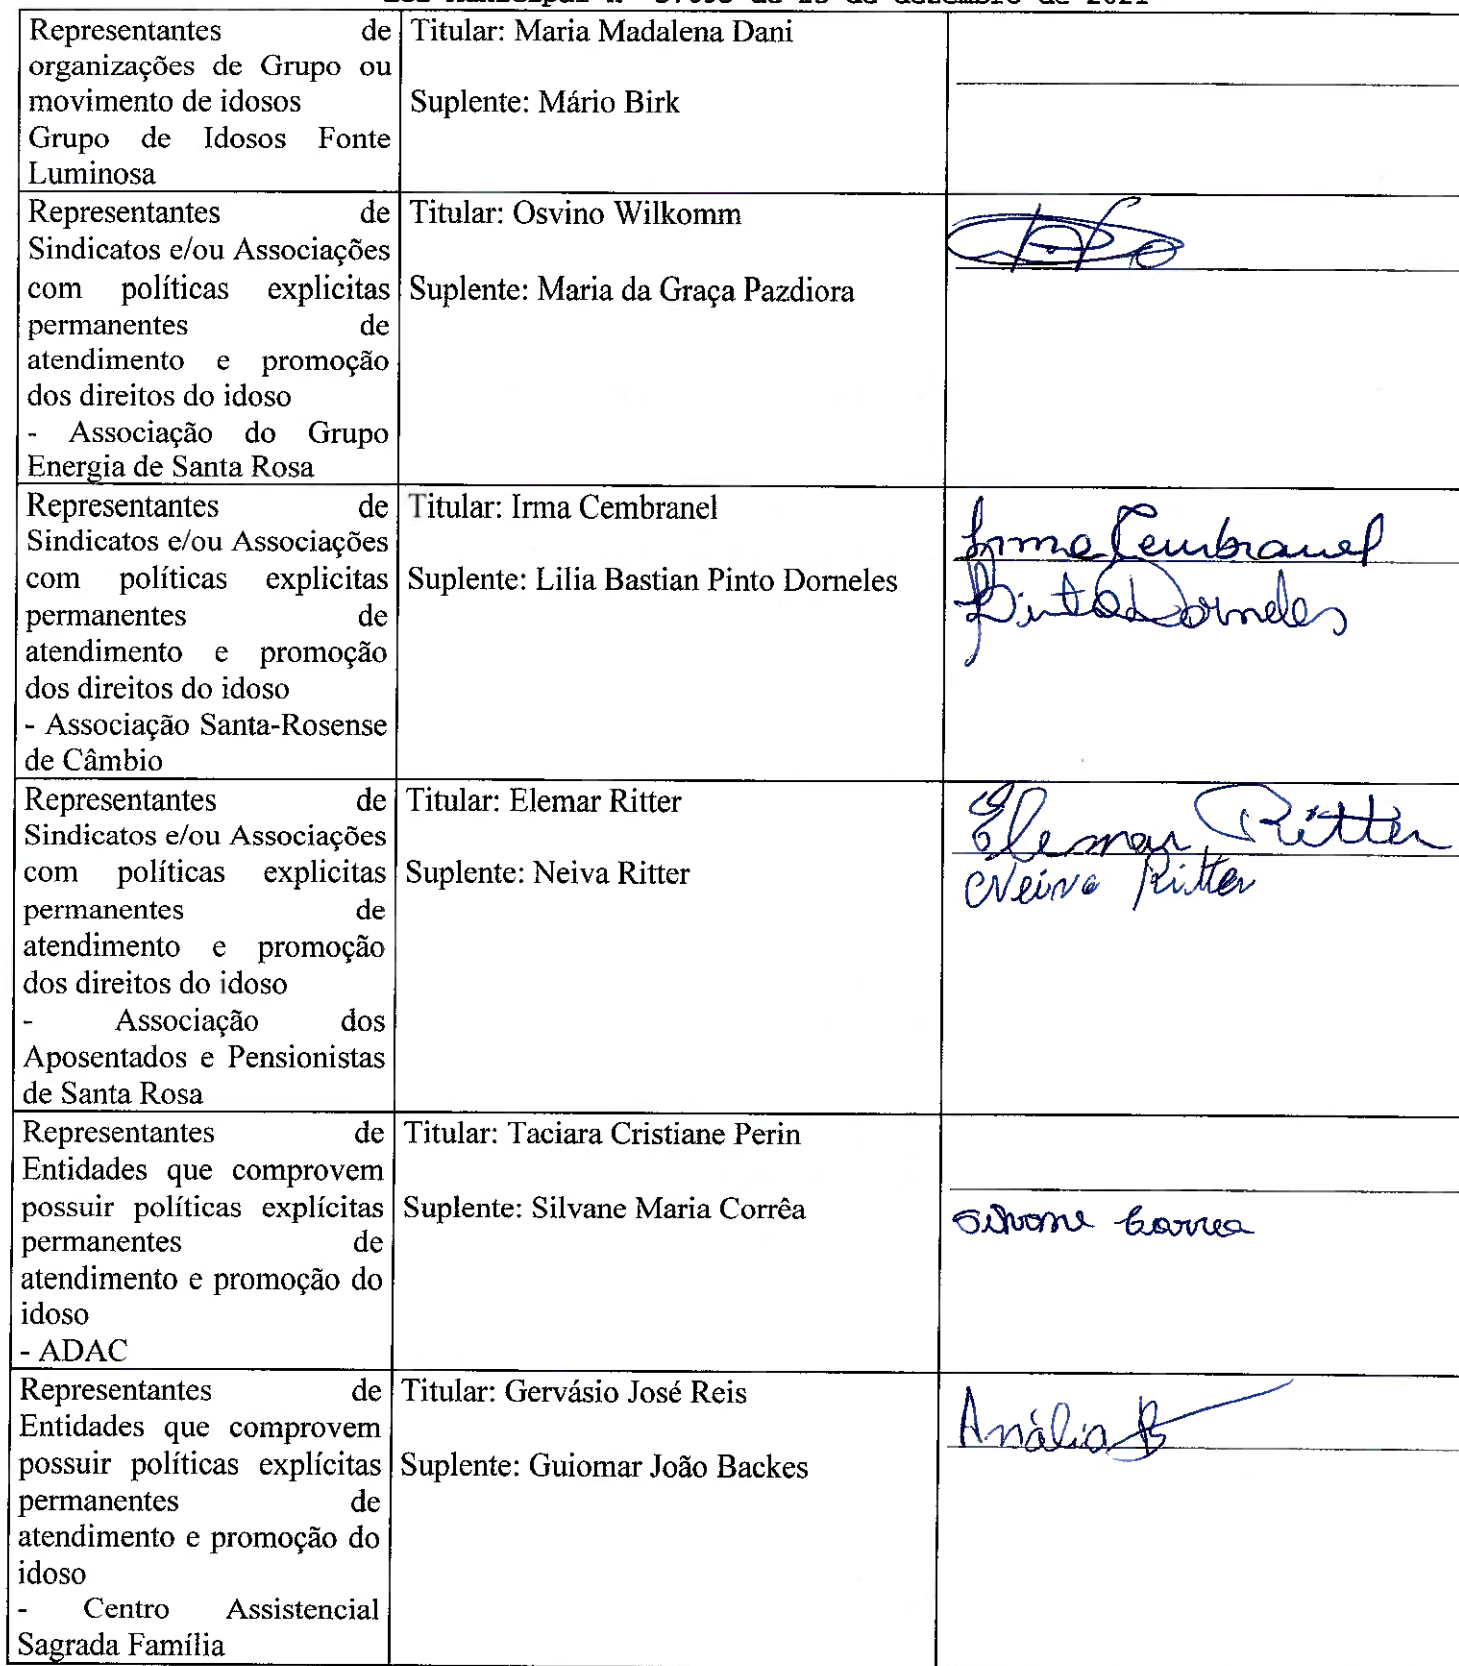 Representantes de
organizações de Grupo ou
movimento de idosos
Grupo de Idosos Fonte
Luminosa
Titular: Maria Madalena Dani
Suplente: Mário Birk
Representantes de
Sindicatos e/ou Associações
com políticas explicitas
permanentes de
atendimento e promoção
dos direitos do idoso
- Associação do Grupo
Energia de Santa Rosa
Titular: Osvino Wilkomm
Suplente: Maria da Graça Pazdiora
Representantes de
Sindicatos e/ou Associações
com políticas explicitas
permanentes de
atendimento e promoção
dos direitos do idoso
- Associação Santa-Rosense
de Câmbio
Titular: Irma Cembranel
Suplente: Lilia Bastian Pinto Dorneles
Irma Cembranel
Pinto Dorneles
Representantes de
Sindicatos e/ou Associações
com políticas explicitas
permanentes de
atendimento e promoção
dos direitos do idoso
- Associação dos
Aposentados e Pensionistas
de Santa Rosa
Titular: Elemar Ritter
Suplente: Neiva Ritter
Elemar Ritter
Neiva Ritter
Representantes de
Entidades que comprovem
possuir políticas explícitas
permanentes de
atendimento e promoção do
idoso
- ADAC
Titular: Taciara Cristiane Perin
Suplente: Silvane Maria Corrêa
Silvane Correa
Representantes de
Entidades que comprovem
possuir políticas explícitas
permanentes de
atendimento e promoção do
idoso
- Centro Assistencial
Sagrada Família
Titular: Gervásio José Reis
Suplente: Guiomar João Backes
Anália